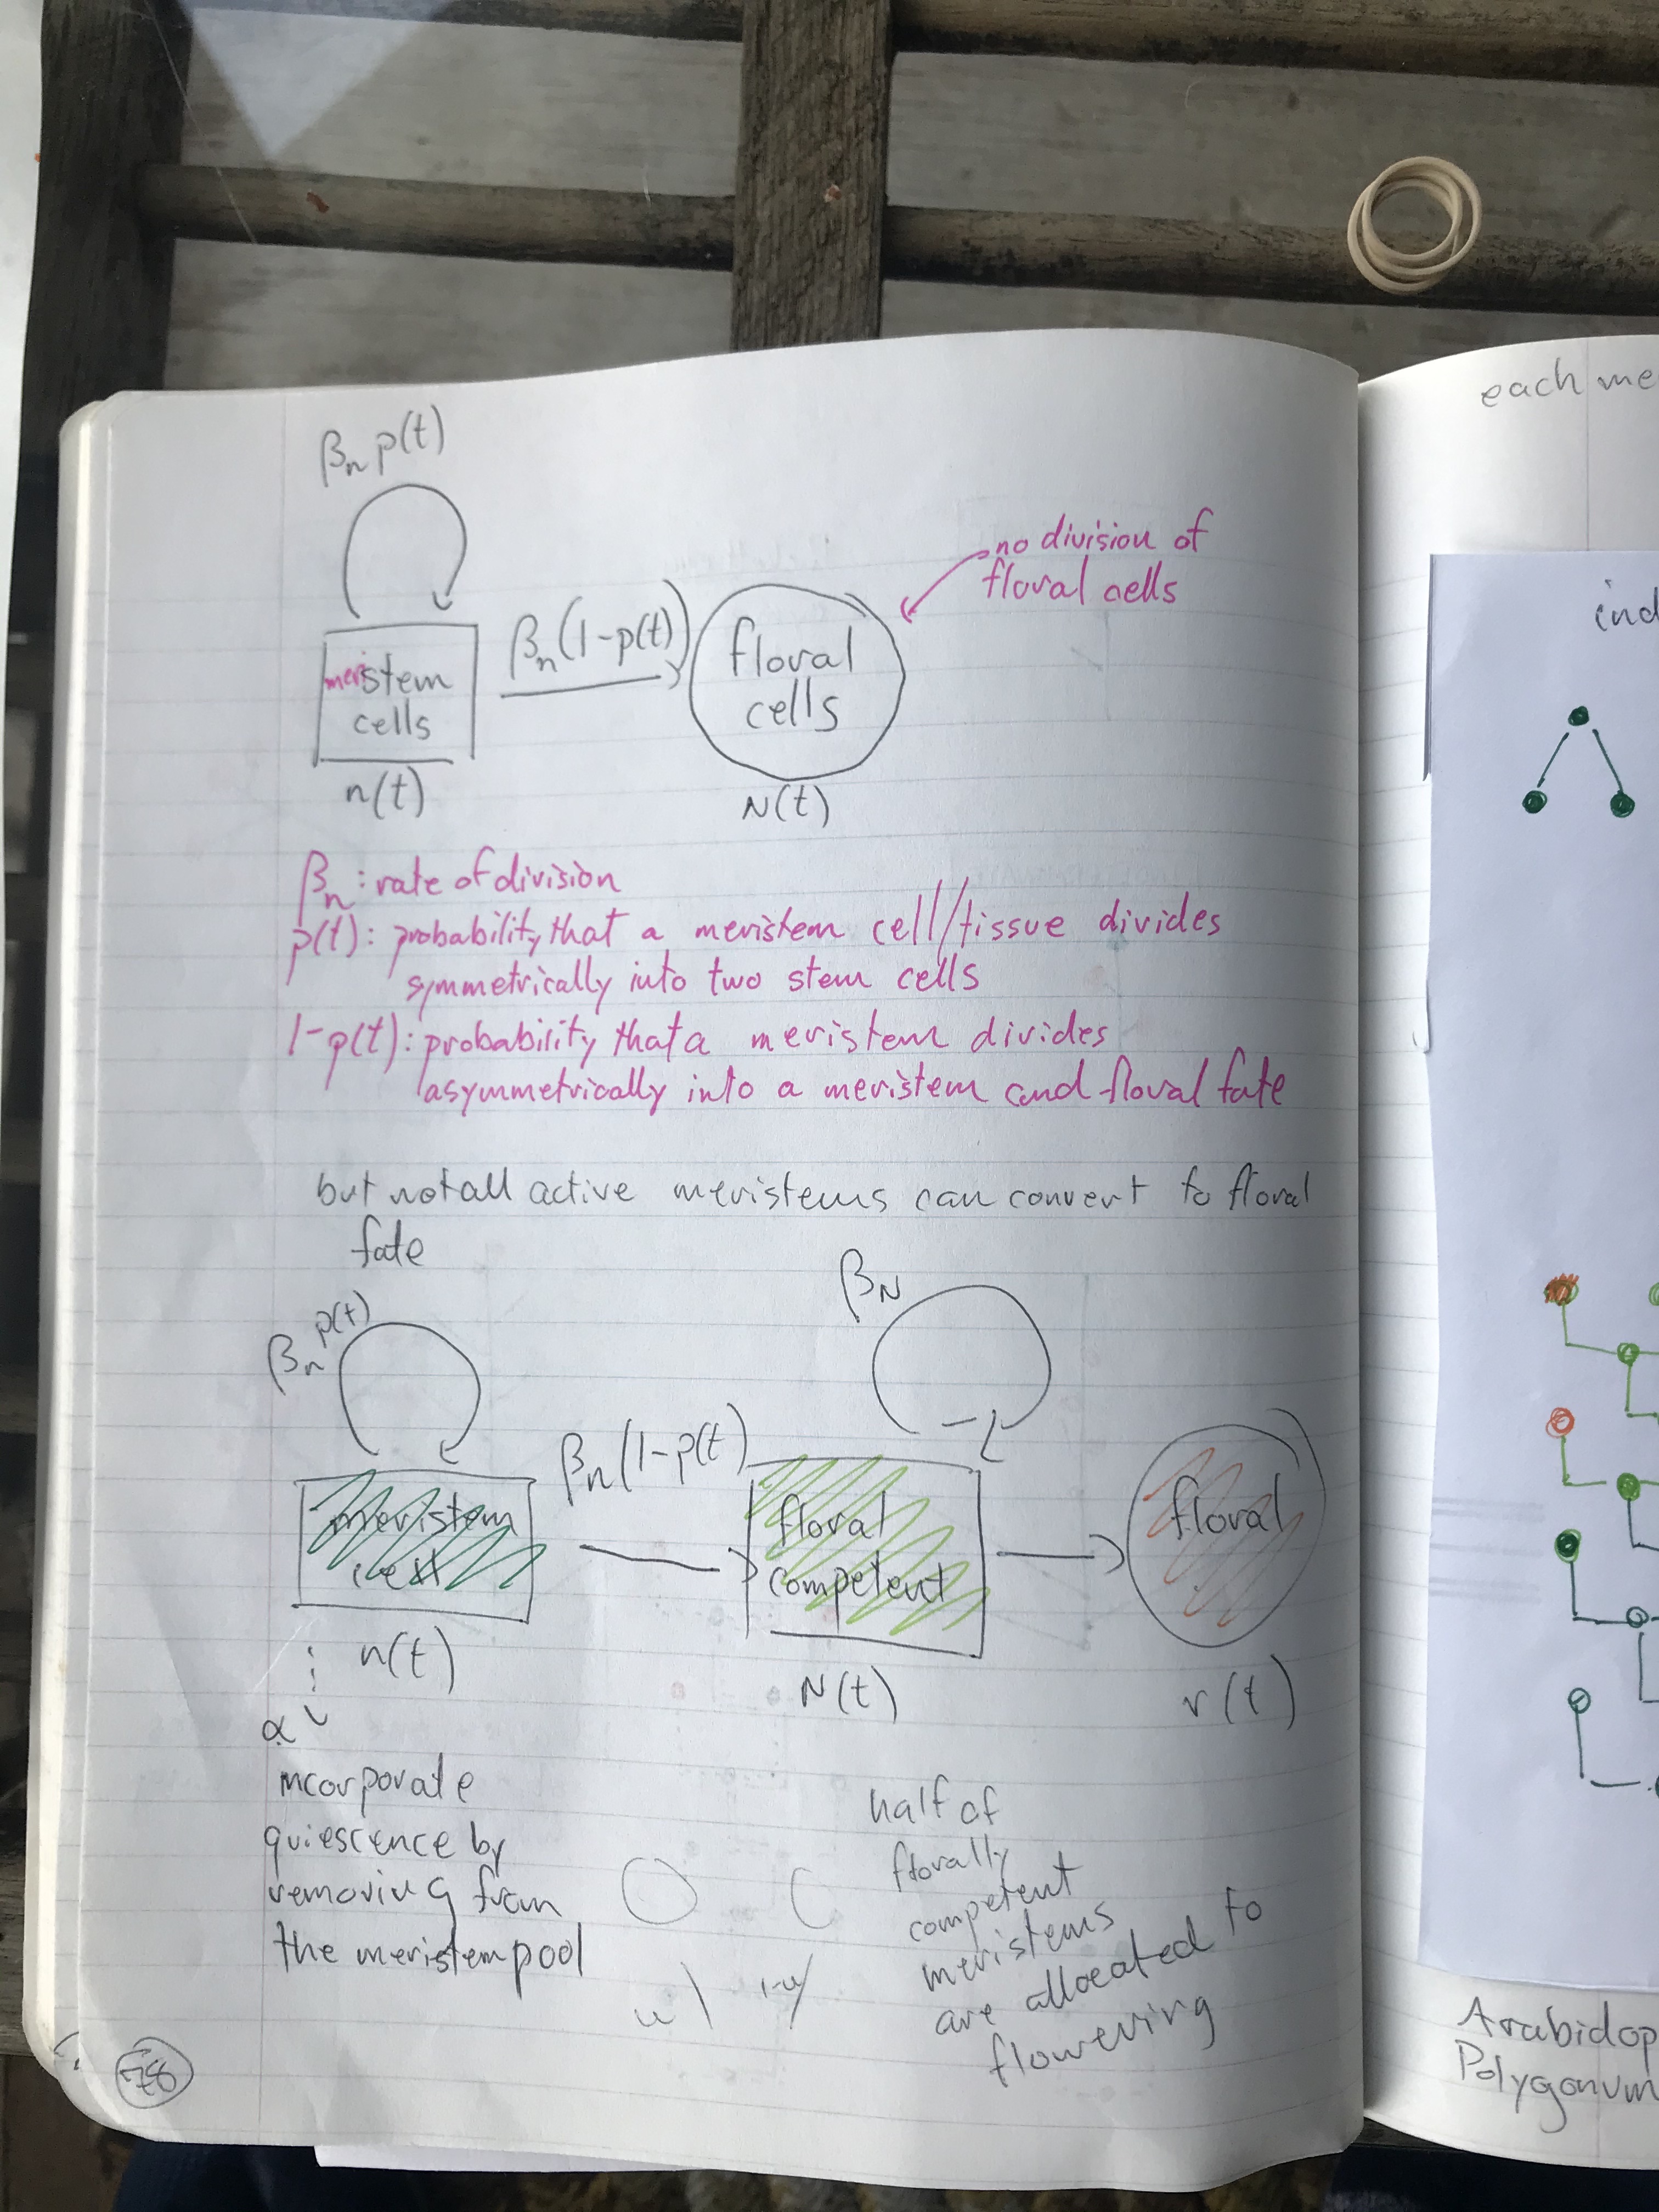 βn p(t)
no division of
floral cells
meristem
cells
βn(1-p(t))
floral
cells
n(t)
N(t)
βn : rate of division
p(t) : probability that a meristem cell/tissue divides
symmetrically into two stem cells
1-p(t) : probability that a meristem divides
asymmetrically into a meristem and floral fate
but not all active meristems can convert to floral
fate
βn p(t)
βN
βn(1-p(t)
meristem
floral
competent
floral
n(t)
N(t)
r(t)
α
incorporate
quiescence by
removing from
the meristem pool
half of
florally
competent
meristems
are allocated to
flowering
78
each me
ind
Arabidop
Polygonum